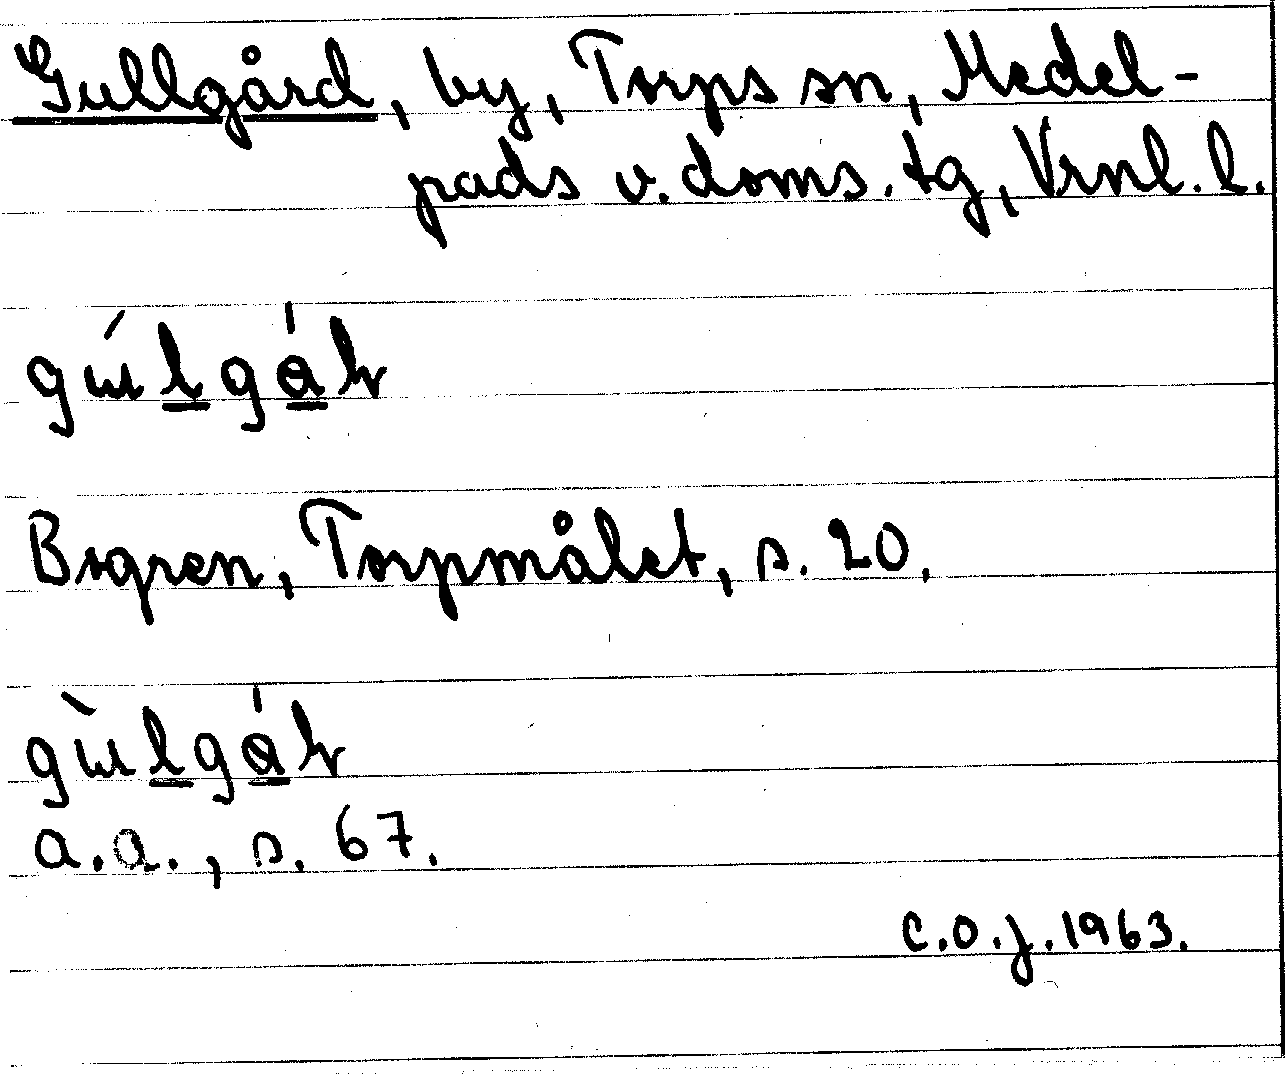 Gullgård, by, Torps sn, Medel-
pads v. doms. tg, Vrnl. l.
gɯ́l̲gá̲ɽ
Bogren, Torpmålet, s. 20.
gɯ̀l̲gá̲ɽ
a.a., s. 67.
C.O.J. 1963.